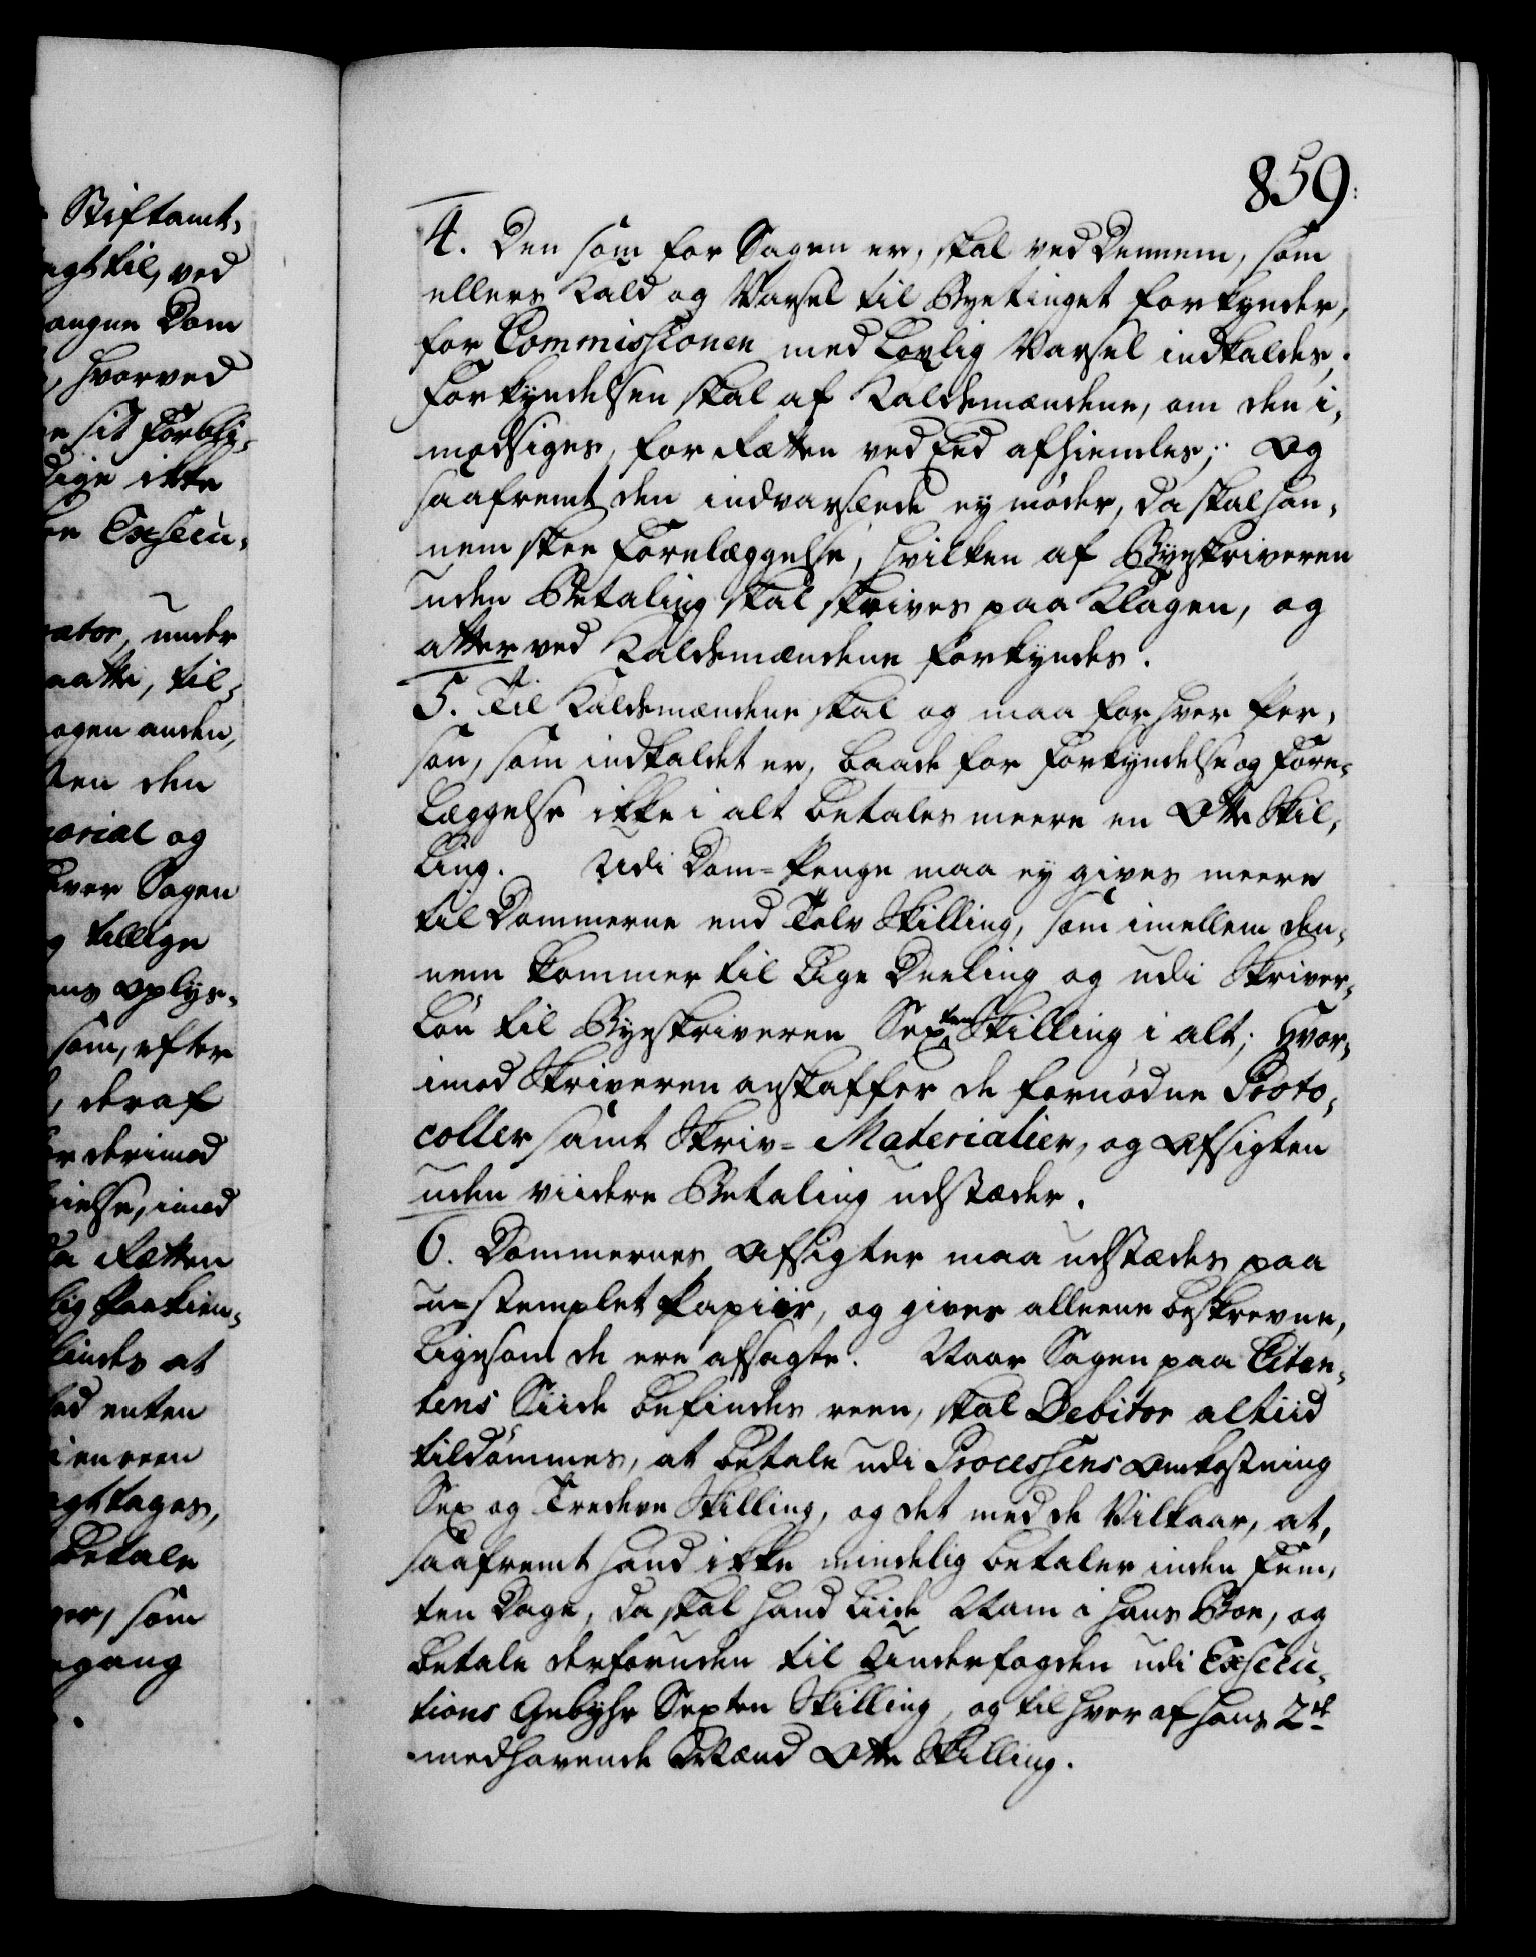 859.
4. Den som for Sagen er, skal ved Dennem, som
ellers Kald og Varsel til Byetinget forkynder,
for Commissionen med Lovlig Varsel indkaldes,
Forkyndelsen skal af Kaldsmændene, om den i,
modsiges, for Rætten ved Eed afhiemles; Og
saafremt den indvarslede ey møder, da skal han,
nem skee Forelæggelse, hvilken af Byeskriveren
uden Betaling skal skrives paa Klagen, og
atter ved Kaldsmændene forkyndes.
5. Til Kaldsmændene skal og maa for hver Per,
son, som indkaldet er, baade for Forkyndelse og Fore-
læggelse ikke i alt betales meere en Otte Skil,
ling. Udi Dom-Penge maa ey gives meere
til Dommerne end Tolv Skilling, som imellem den,
nem kommer til Lige Deeling og udi Skriver-
løn til Byeskriveren Sexten Skilling i alt; Hvor,
imod Skriveren anskaffer de fornødne Proto,
coller samt Skriv-Materialier, og Afsigten
uden viidere Betaling udstæder.
6. Dommernes Afsigter maa udstædes paa
u-stemplet Papiir, og gives alleene beskrevne,
Ligesom de ere afsagte. Naar Sagen paa Citan,
tens Siide befindes reen, skal Debitor altiid
tildømmes, at betale udi Processens Omkostning
Sex og Tredeve Skilling, og det med de Vilkaar, at,
saafremt hand ikke mindelig betaler inden Fem,
ten Dage, da skal hand Liide Nam i hans Boe, og
betale desforuden til Underfogden udi Execu,
tions Gebyhr Sexten Skilling, og til hver af hans 2de
medhavende Mænd Otte Skilling.
Stiftamt,
agt til, ved
angne Dom
, hvorved
sit Forbli-
dige ikke
Execu,
cator, under
maatte, til-
ogen anden,
ten den
morial og
hver Sagen
tillige
ens oplys-
som, efter
, deraf
derimod
ielse, imod
Rætten
lig Paakien,
findes at
enten
reen
agt tages,
betale
, som
gang